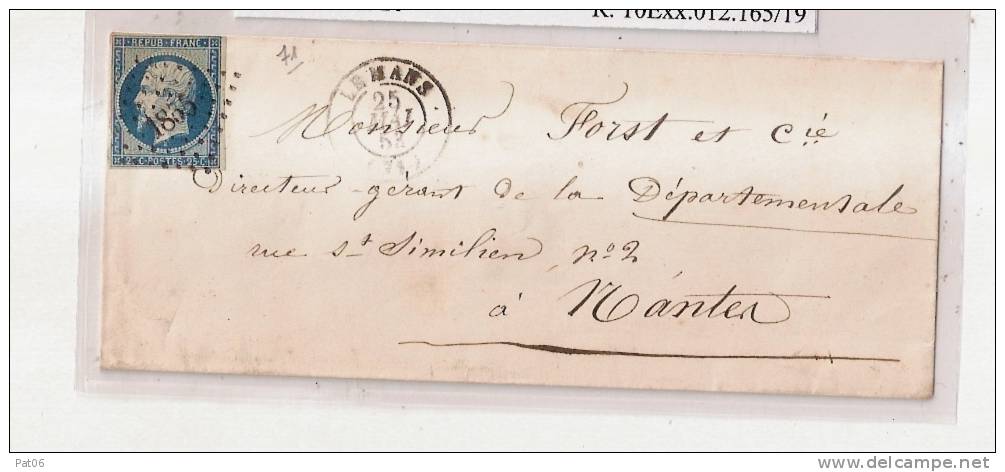 R. 10Exx.012.165/19
REPUB. FRANC.
1835
25 C. POSTES 25 C.
71
LE MANS
25
MAI
(71)
Monsieur Forst et Cie
Directeur-gérant de la Départementale
rue St Similien, no 2
à Nantes
Pat06
www.delcampe.net